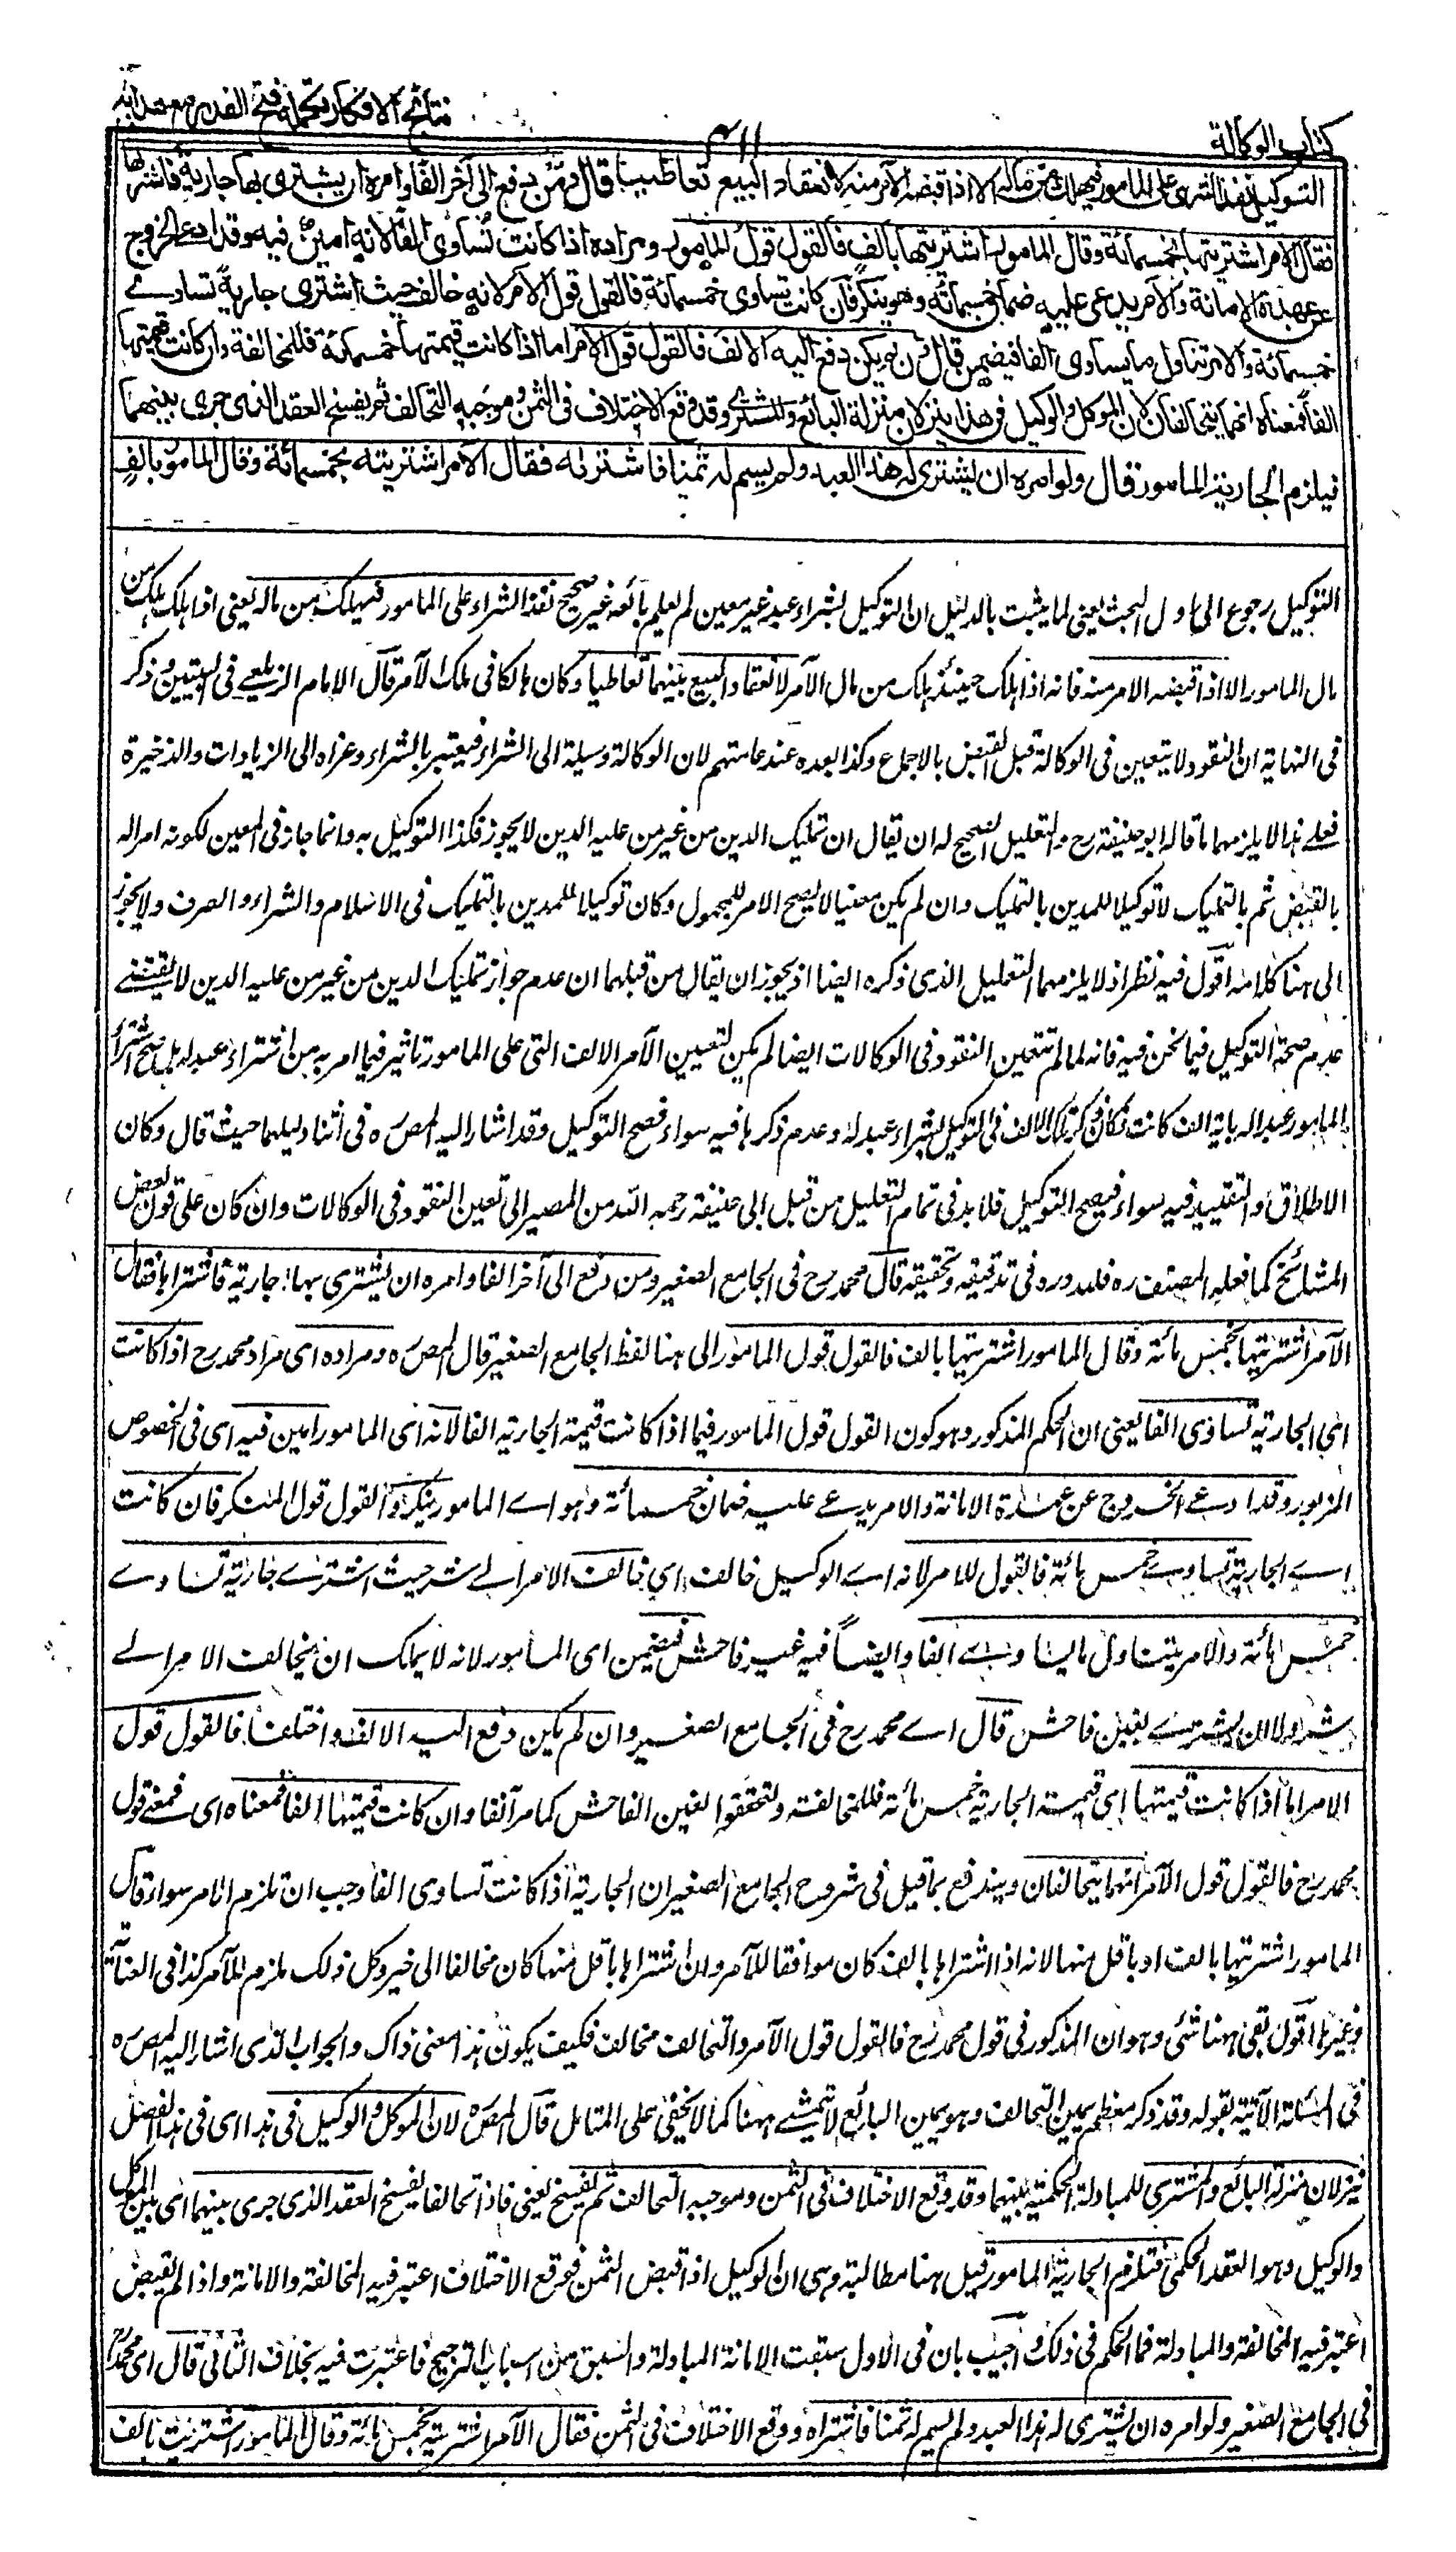 كتاب الوكالة
نتائج الافكار تكملة فتح القدير مع هداية
التوكيل نفذ الشرى على المامور فيهلك من ماله الا اذا قبضه الآمر منه لانعقاد البيع تعاطيا قال ومن دفع الى آخر الفا وامره ان يشترى بها جارية فاشتراها
فقال الآمر اشتريتها بخمسمائة وقال المامور اشتريتها بالف فالقول قول المامور ومراده اذا كانت تساوى الفا لانه امين فيه وقد ادعى الخروج
عن عهدة الامانة والآمر يدعى عليه ضمان خمسمائة وهو ينكر فان كانت تساوى خمسمائة فالقول قول الآمر لانه خالف حيث اشترى جارية تساوے
خمسمائة والامر تناول ما يساوى الفا فيضمن قال وان لم يكن دفع اليه الالف فالقول قول الآمر اما اذا كانت قيمتها خمسمائة فللمخالفة وان كانت قيمتها
الفا فمعناه انهما يتحالفان لان الموكل والوكيل فى هذا ينزلان منزلة البائع والمشترے وقد وقع الاختلاف فى الثمن وموجبه التحالف ثم يفسخ العقد الذى جرى بينهما
فيلزم الجارية المامور قال ولو امره ان يشترى له هذا العبد ولم يسم له ثمنا فاشتراه فقال الآمر اشتريته بخمسمائة وقال المامور بالف
التوكيل رجوع الى اول البحث يعنى لما يثبت بالدليل ان التوكيل بشراء عبد غير معين لم يعلم بائعه غير صحيح نفذ الشراء على المامور فيهلك من ماله يعنى اذا هلك هلك من
مال المامور الا اذا قبضه الآمر منه فانه اذا هلك حينئذ هلك من مال الآمر لانعقاد البيع بينهما تعاطيا وكان هالكا فى ملك الآمر قال الامام الزيلعے فى التبيين وذكر
فى النهاية ان النقود لا يتعين فى الوكالة قبل القبض بالاجماع وكذا بعده عند عامتهم لان الوكالة وسيلة الى الشراء فيعتبر بالشراء وعزاه الى الزيادات والذخيرة
فعلے هذا لا يلزمهما ما قاله ابو حنيفة رح والتعليل الصحيح له ان يقال ان تمليك الدين من غير من عليه الدين لا يجوز فكذا التوكيل به وانما جاز فى المعين لكونه امرا له
بالقبض ثم بالتمليك لا توكيلا للمدين بالتمليك وان لم يكن معنيا لا يصح الامر للمجهول وكان توكيلا للمدين بالتمليك فى الاسلام والشراء والصرف ولا يجوز
الى هنا كلامه اقول فيه نظر اذ لا يلزمهما التعليل الذى ذكره ايضا اذ يجوز ان يقال من قبلهما ان عدم جواز تمليك الدين من غير من عليه الدين لا يقتضے
عدم صحة التوكيل فيما نحن فيه فانه لما لم تتعين النقود فى الوكالات ايضا لم يكن لتعيين الآمر الالف التى على المامور تاثير فيما امر به من اشتراء عبد له بل صح اشتراء
المامور عبدا له باية الف كانت فكان ذكر تلك الالف فى التوكيل بشراء عبد له وعدم ذكرها فيه سواء فصح التوكيل وقد اشار اليه المص ره فى اثناء دليلهما حيث قال وكان
الاطلاق والتقييد فيه سواء فيصح التوكيل فلا بد فى تمام التعليل من قبل ابى حنيفة رحمه الله من المصير الى تعين النقود فى الوكالات وان كان على قول بعض
المشائخ كما فعله المصنف ره فلله دره فى تدقيقه وتحقيقه قال محمد رح فى الجامع الصغير ومن دفع الى آخر الفا وامره ان يشترى بها جارية فاشتراها فقال
الآمر اشتريتها بخمس مائة وقال المامور اشتريتها بالف فالقول قول المامور الى هنا لفظ الجامع الصغير قال المص ره ومراده اى مراد محمد رح اذا كانت
اى الجارية تساوى الفا يعنى ان الحكم المذكور وهو كون القول قول المامور فيما اذا كانت قيمة الجارية الفا لانه اى المامور امين فيه اى فى الخصوص
المزبور وقد ادعے الخروج عن عهدة الامانة والآمر يدعے عليه ضمان خمسمائة وهو اے المامور ينكر والقول قول المنكر فان كانت
اے الجارية تساوے خمس مائة فالقول للآمر لانه اے الوكيل خالف اى خالف الامر الے شر حيث اشترے جارية تساوے
خمس مائة والامر يتناول ما يساوے الفا وايضا فيه غبن فاحش فيضمن اى المامور لانه لا يملك ان يخالف الامر الے
شر ولا ان يشترے بغبن فاحش قال اے محمد رح فى الجامع الصغير وان لم يكن دفع اليه الالف واختلفا فالقول قول
الآمر اما اذا كانت قيمتها اى قيمة الجارية خمس مائة فللمخالفة ولتحقق الغبن الفاحش كما مر آنفا وان كانت قيمتها الفا فمعناه اى فمعنے قول
محمد رح فالقول قول الآمر انهما يتحالفان ويندفع بما قيل فى شروح الجامع الصغير ان الجارية اذا كانت تساوى الفا وجب ان تلزم الآمر سواء قال
المامور اشتريتها بالف او باقل منها لانه اذا اشتراها بالف كان موافقا للآمر وان اشتراها باقل منها كان مخالفا الى خير وكل ذلك يلزم للآمر كذا فى العناية
وغيرها اقول بقى ههنا شئ وهو ان المذكور فى قول محمد رح فالقول قول الآمر والتحالف مخالف فكيف يكون هذا معنى ذاك والجواب الذى اشار اليه المص ره
فى المسئلة الآتية بقوله وقد ذكر معظم يمين التحالف وهو يمين البائع لا يتمشے ههنا كما لا يخفى على المتامل قال المص ره لان الموكل والوكيل فى هذا اى فى هذا الفصل
ينزلان منزلة البائع والمشترى للمبادلة الحكمية بينهما وقد وقع الاختلاف فى الثمن وموجبه التحالف ثم يفسخ يعنى فاذا تحالفا يفسخ العقد الذى جرى بينهما اى بين الموكل
والوكيل وهو العقد الحكمى فتلزم الجارية المامور قيل هنا مطالبة وهى ان الوكيل اذا قبض الثمن فوقع الاختلاف اعتبر فيه المخالفة والامانة واذا لم يقبض
اعتبر فيه المخالفة والمبادلة فما الحكم فى ذلك واجيب بان فى الاول سبقت الامانة المبادلة والسبق من اسباب الترجيح فاعتبرت فيه بخلاف الثانى قال اى محمد رح
فى الجامع الصغير ولو امره ان يشترى له هذا العبد ولم يسم له ثمنا فاشتراه ووقع الاختلاف فى الثمن فقال الآمر اشتريته بخمس مائة وقال المامور اشتريت بالف